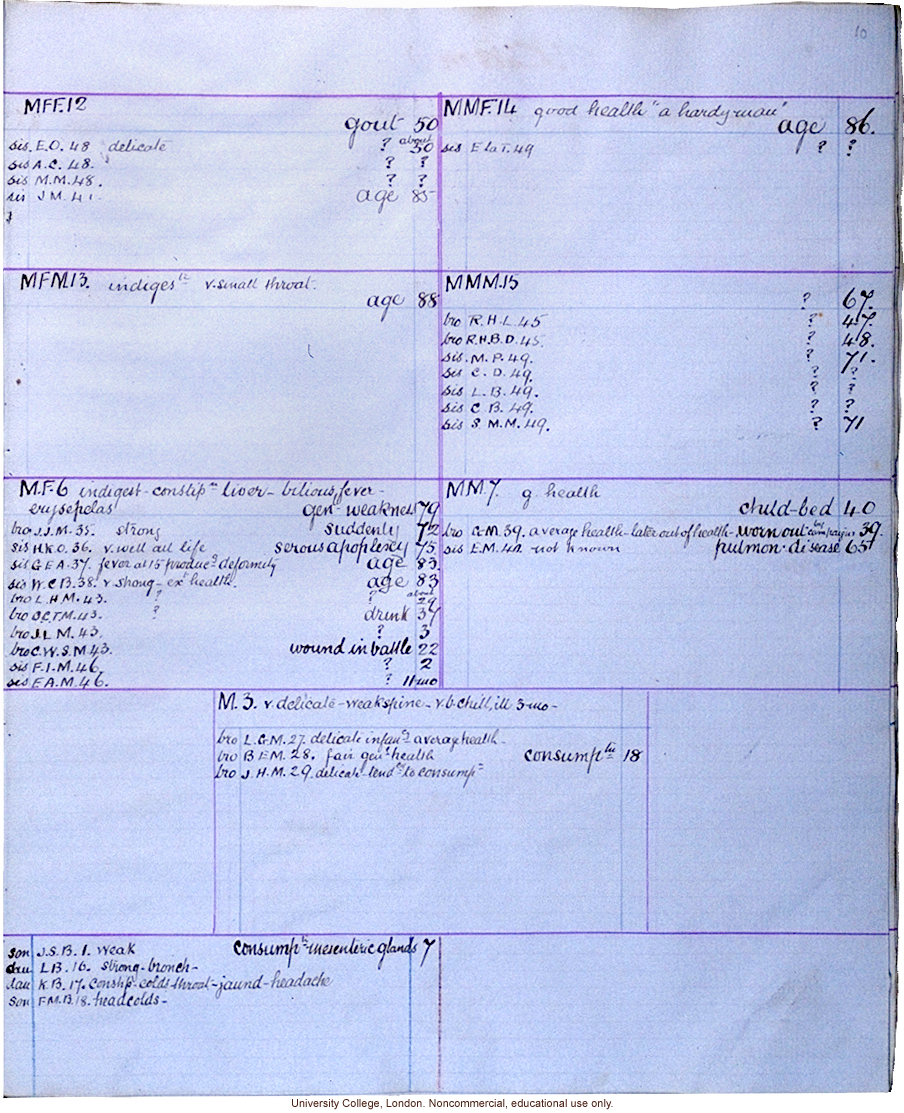 10
MFF.12
gout 50
sis. E.O. 48 delicate ? about 50
sis A.C. 48. ? ?
sis M.M. 48. ? ?
sis J M. 41. age 85
MMF.14 good health "a hardy man"
age 86.
sis E la T. 49 ? ?
MFM.13. indiges^tn v. small throat.
age 88
MMM.15
? 67.
bro R.H.L. 45 ? 47.
bro R.H.B.D. 45. ? 48.
sis. M.P. 49. ? 71.
sis C.D. 49. ? ?
sis L.B. 49. ? ?
sis C B. 49. ? ?
sis S M.M. 49. ? 71
M.F.6 indigest-constip^n liver-bilious, fever-
erysepelas gen^l weakness 79
bro J.J.M. 35. strong suddenly 72
sis H.K.O. 36. v. well all life serous apoplexy 75
sis G.E.A. 37. fever at 15 produc^d deformity age 83.
sis W.C.B. 38. v strong-ex^t health. age 83
bro L.H.M. 43. ? ? about 29
bro D.C.T.M. 43. ? drink 37
bro J.L M. 43. ? 3
bro C.W.S.M. 43. wound in battle 22
sis F.I.M. 46. ? 2
sis E.A.M. 46. ? 11 mo
MM7. g. health
child-bed 40
bro G.M. 39. average health-later out of health-worn out by campaigns 39.
sis E.M. 42. not known pulmon. disease 65
M. 3. v delicate-weak spine-v. b. chill, ill 3 mo-
bro L.G.M. 27. delicate infan^cy average health-
bro B E M. 28. fair gen^l health consump^tn 18
bro J.H.M. 29. delicate-tend^cy to consump^n
son J.S.B. 1. weak consump^tn mesenteric glands 7
dau L B. 16. strong-bronch-
dau K.B. 17. constip-colds-throat-jaund-headache
son F.M.B. 18. headcolds-
University College, London. Noncommercial, educational use only.